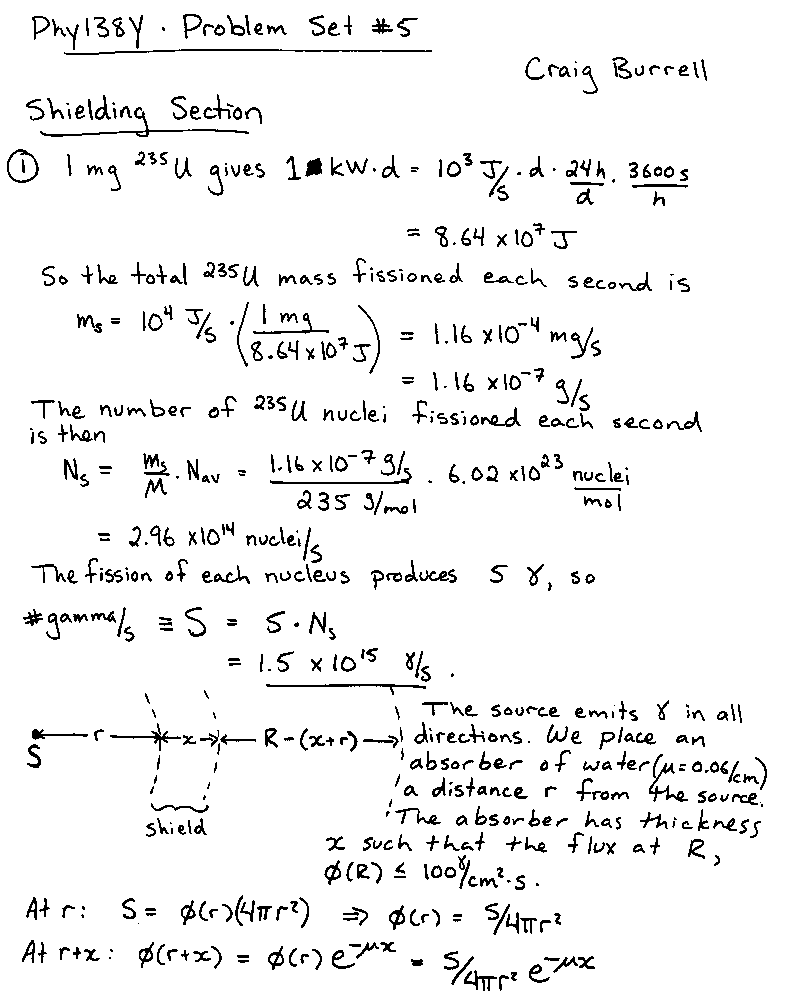 Phy138Y · Problem Set #5
Craig Burrell
Shielding Section
① 1 mg ²³⁵U gives 1 kW·d = 10³ J/s · d · 24h/d · 3600s/h
= 8.64 x10⁷ J
So the total ²³⁵U mass fissioned each second is
mₛ = 10⁴ J/s · (1 mg / 8.64x10⁷ J) = 1.16 x10⁻⁴ mg/s
= 1.16 x10⁻⁷ g/s
The number of ²³⁵U nuclei fissioned each second
is then
Nₛ = mₛ/M · Nav = 1.16 x10⁻⁷ g/s / 235 g/mol · 6.02 x10²³ nuclei/mol
= 2.96 x10¹⁴ nuclei/s
The fission of each nucleus produces 5 γ, so
#gamma/s ≡ S = 5 · Nₛ
= 1.5 x 10¹⁵ γ/s .
S r x R-(x+r)
shield
The source emits γ in all
directions. We place an
absorber of water (μ=0.06/cm)
a distance r from the source.
The absorber has thickness
x such that the flux at R,
φ(R) ≤ 100 γ/cm²·s.
At r: S = φ(r)(4πr²) ⇒ φ(r) = S/4πr²
At r+x: φ(r+x) = φ(r) e^-μx = S/4πr² e^-μx